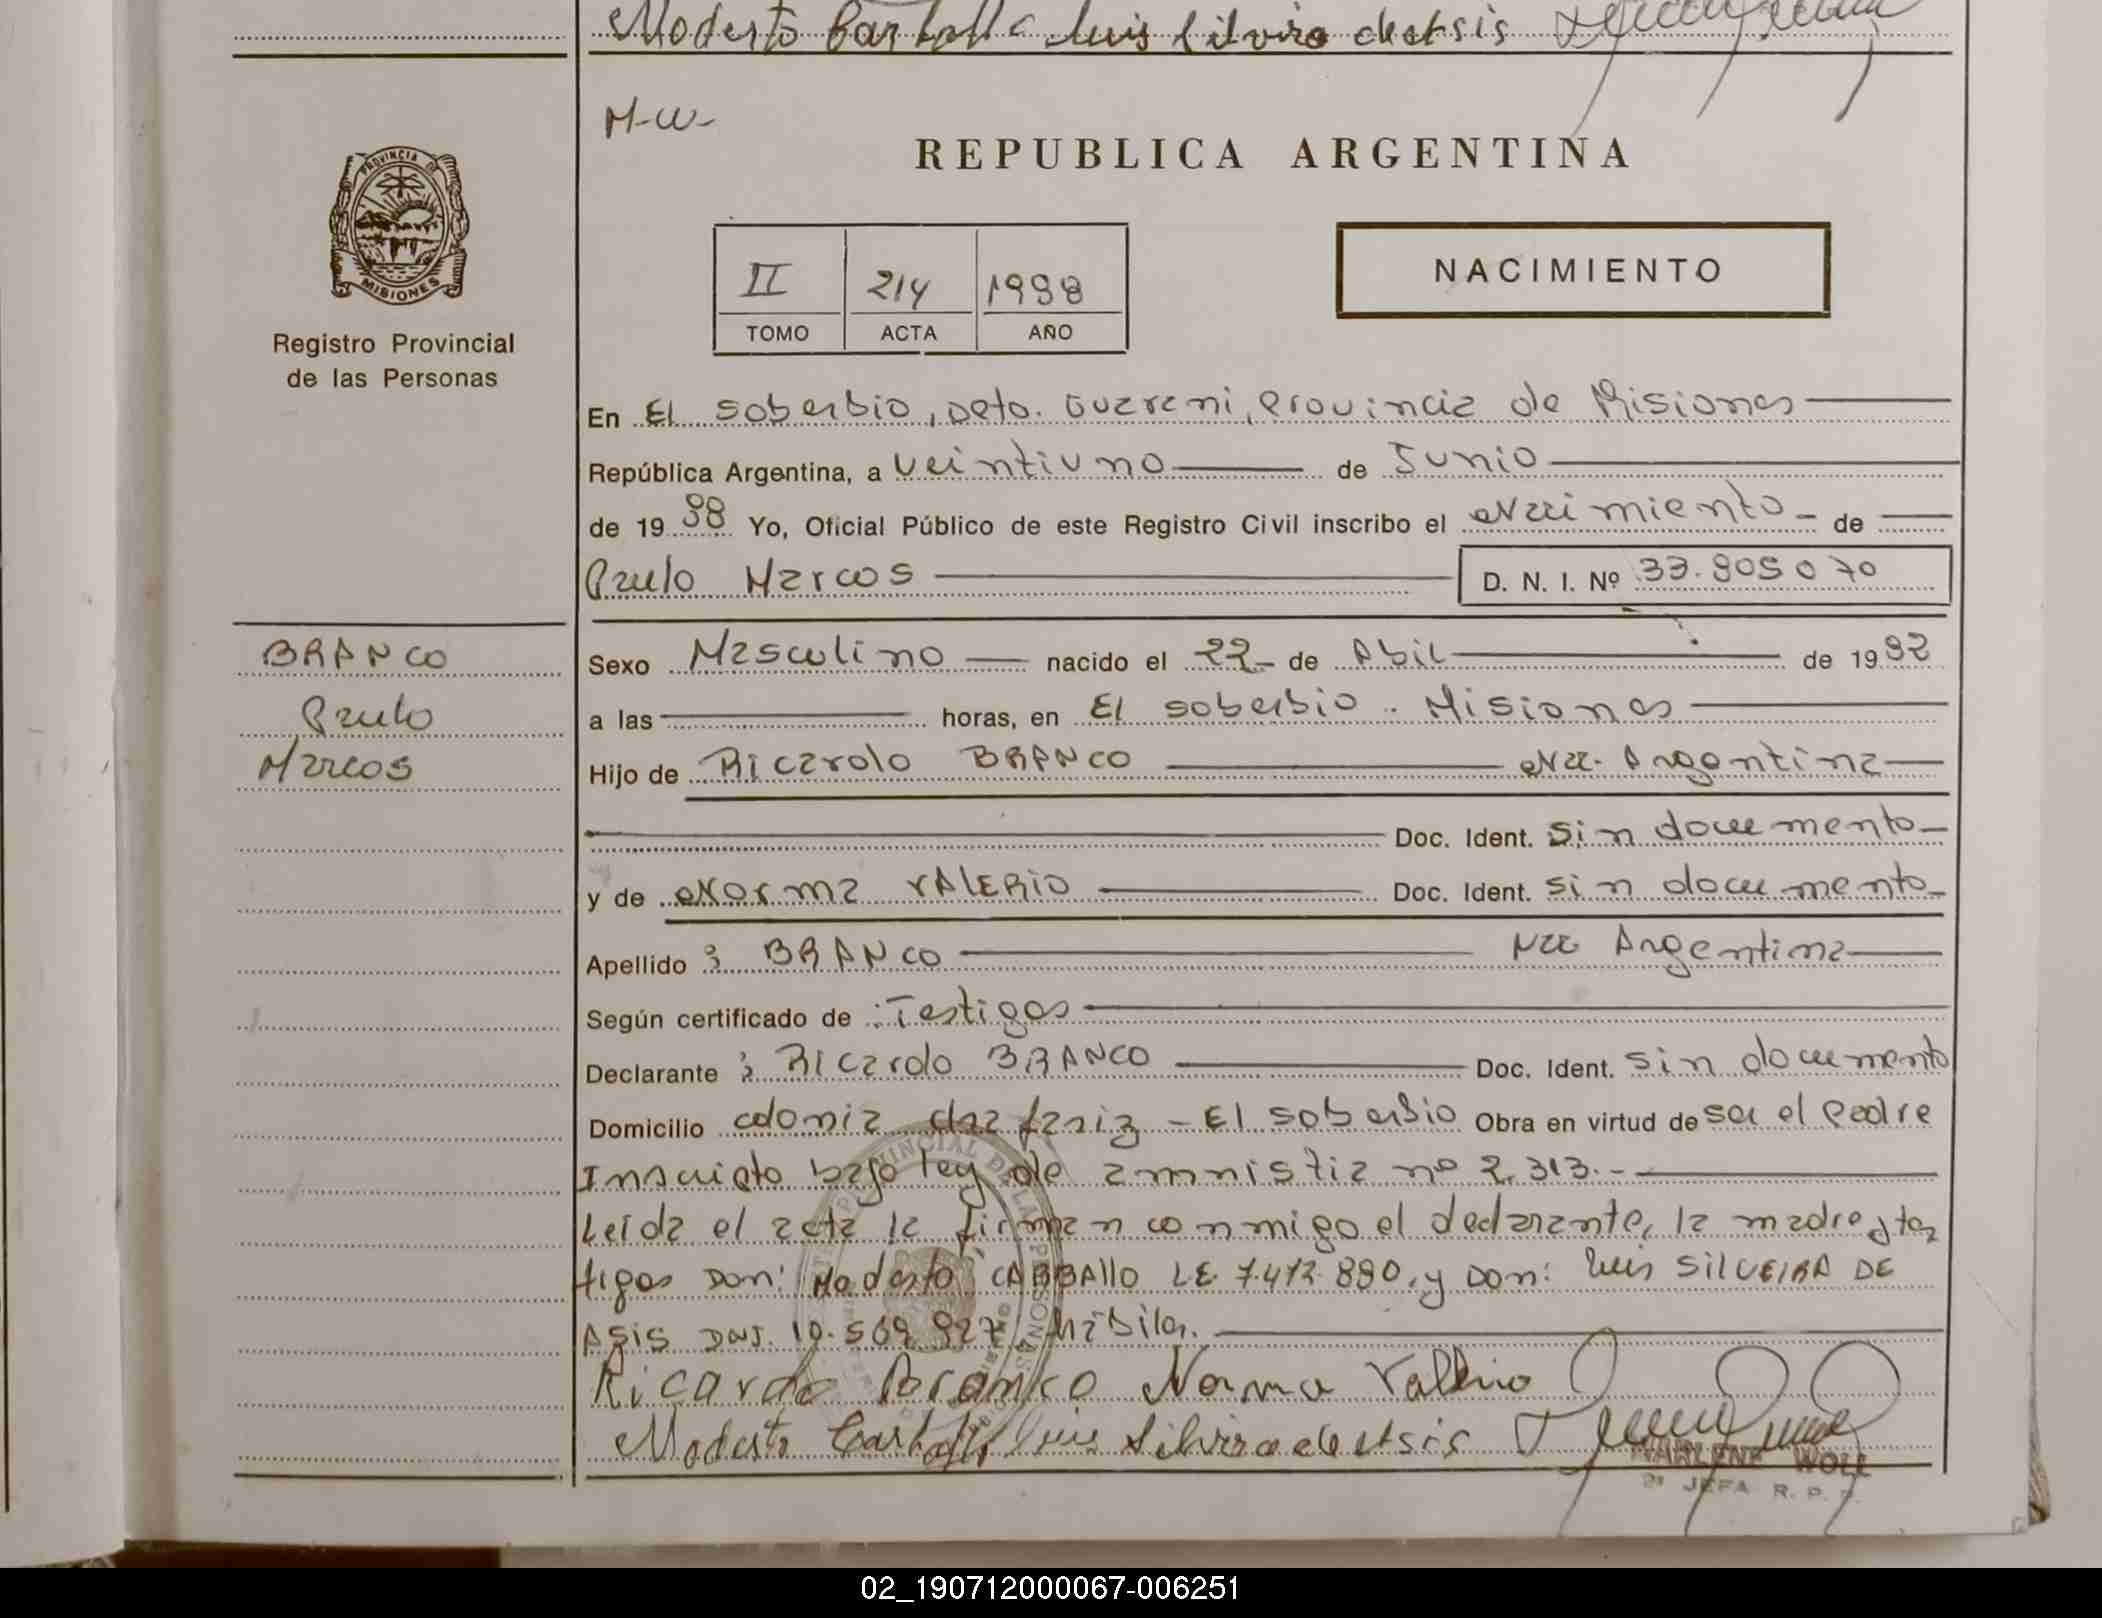 Modesto Carballo Luis Silvira de Assis
M-W-
PROVINCIA DE
MISIONES
REPUBLICA ARGENTINA
II 214 1998
TOMO ACTA AÑO
NACIMIENTO
Registro Provincial
de las Personas
En El soberbio, Dpto. Guarani, Provincia de Misiones
República Argentina, a veintiuno de Junio
de 19 98 Yo, Oficial Público de este Registro Civil inscribo el Nacimiento - de
Paulo Marcos D. N. I. Nº 33.905070
BRANCO
Paulo
Marcos
Sexo Masculino nacido el 22- de Abil de 19 92
a las horas, en El soberbio - Misiones
Hijo de Ricardo BRANCO Nac. Argentina
Doc. Ident. sin documento-
y de Norma VALERIO Doc. Ident. sin documento-
Apellido : BRANCO Nac Argentina
Según certificado de : Testigos
Declarante : Ricardo BRANCO Doc. Ident. sin documento
Domicilio colonia - El soberbio Obra en virtud de ser el Padre
Inscripto bajo ley de amnistia nº 2.313.-
Leida el acta la firman conmigo el declarante, la madre y tes
tigos Don: Modesto CARBALLO L.E. 7.472.890, y Don: Luis SILVEIRA DE
ASIS DNI. 19.569.927, hábiles.
Ricardo Branco Norma Vallerio
Modesto Carballo Luis Silvira de Assis
MARLENE WOLL
2ª JEFA R. P. P.
02_190712000067-006251